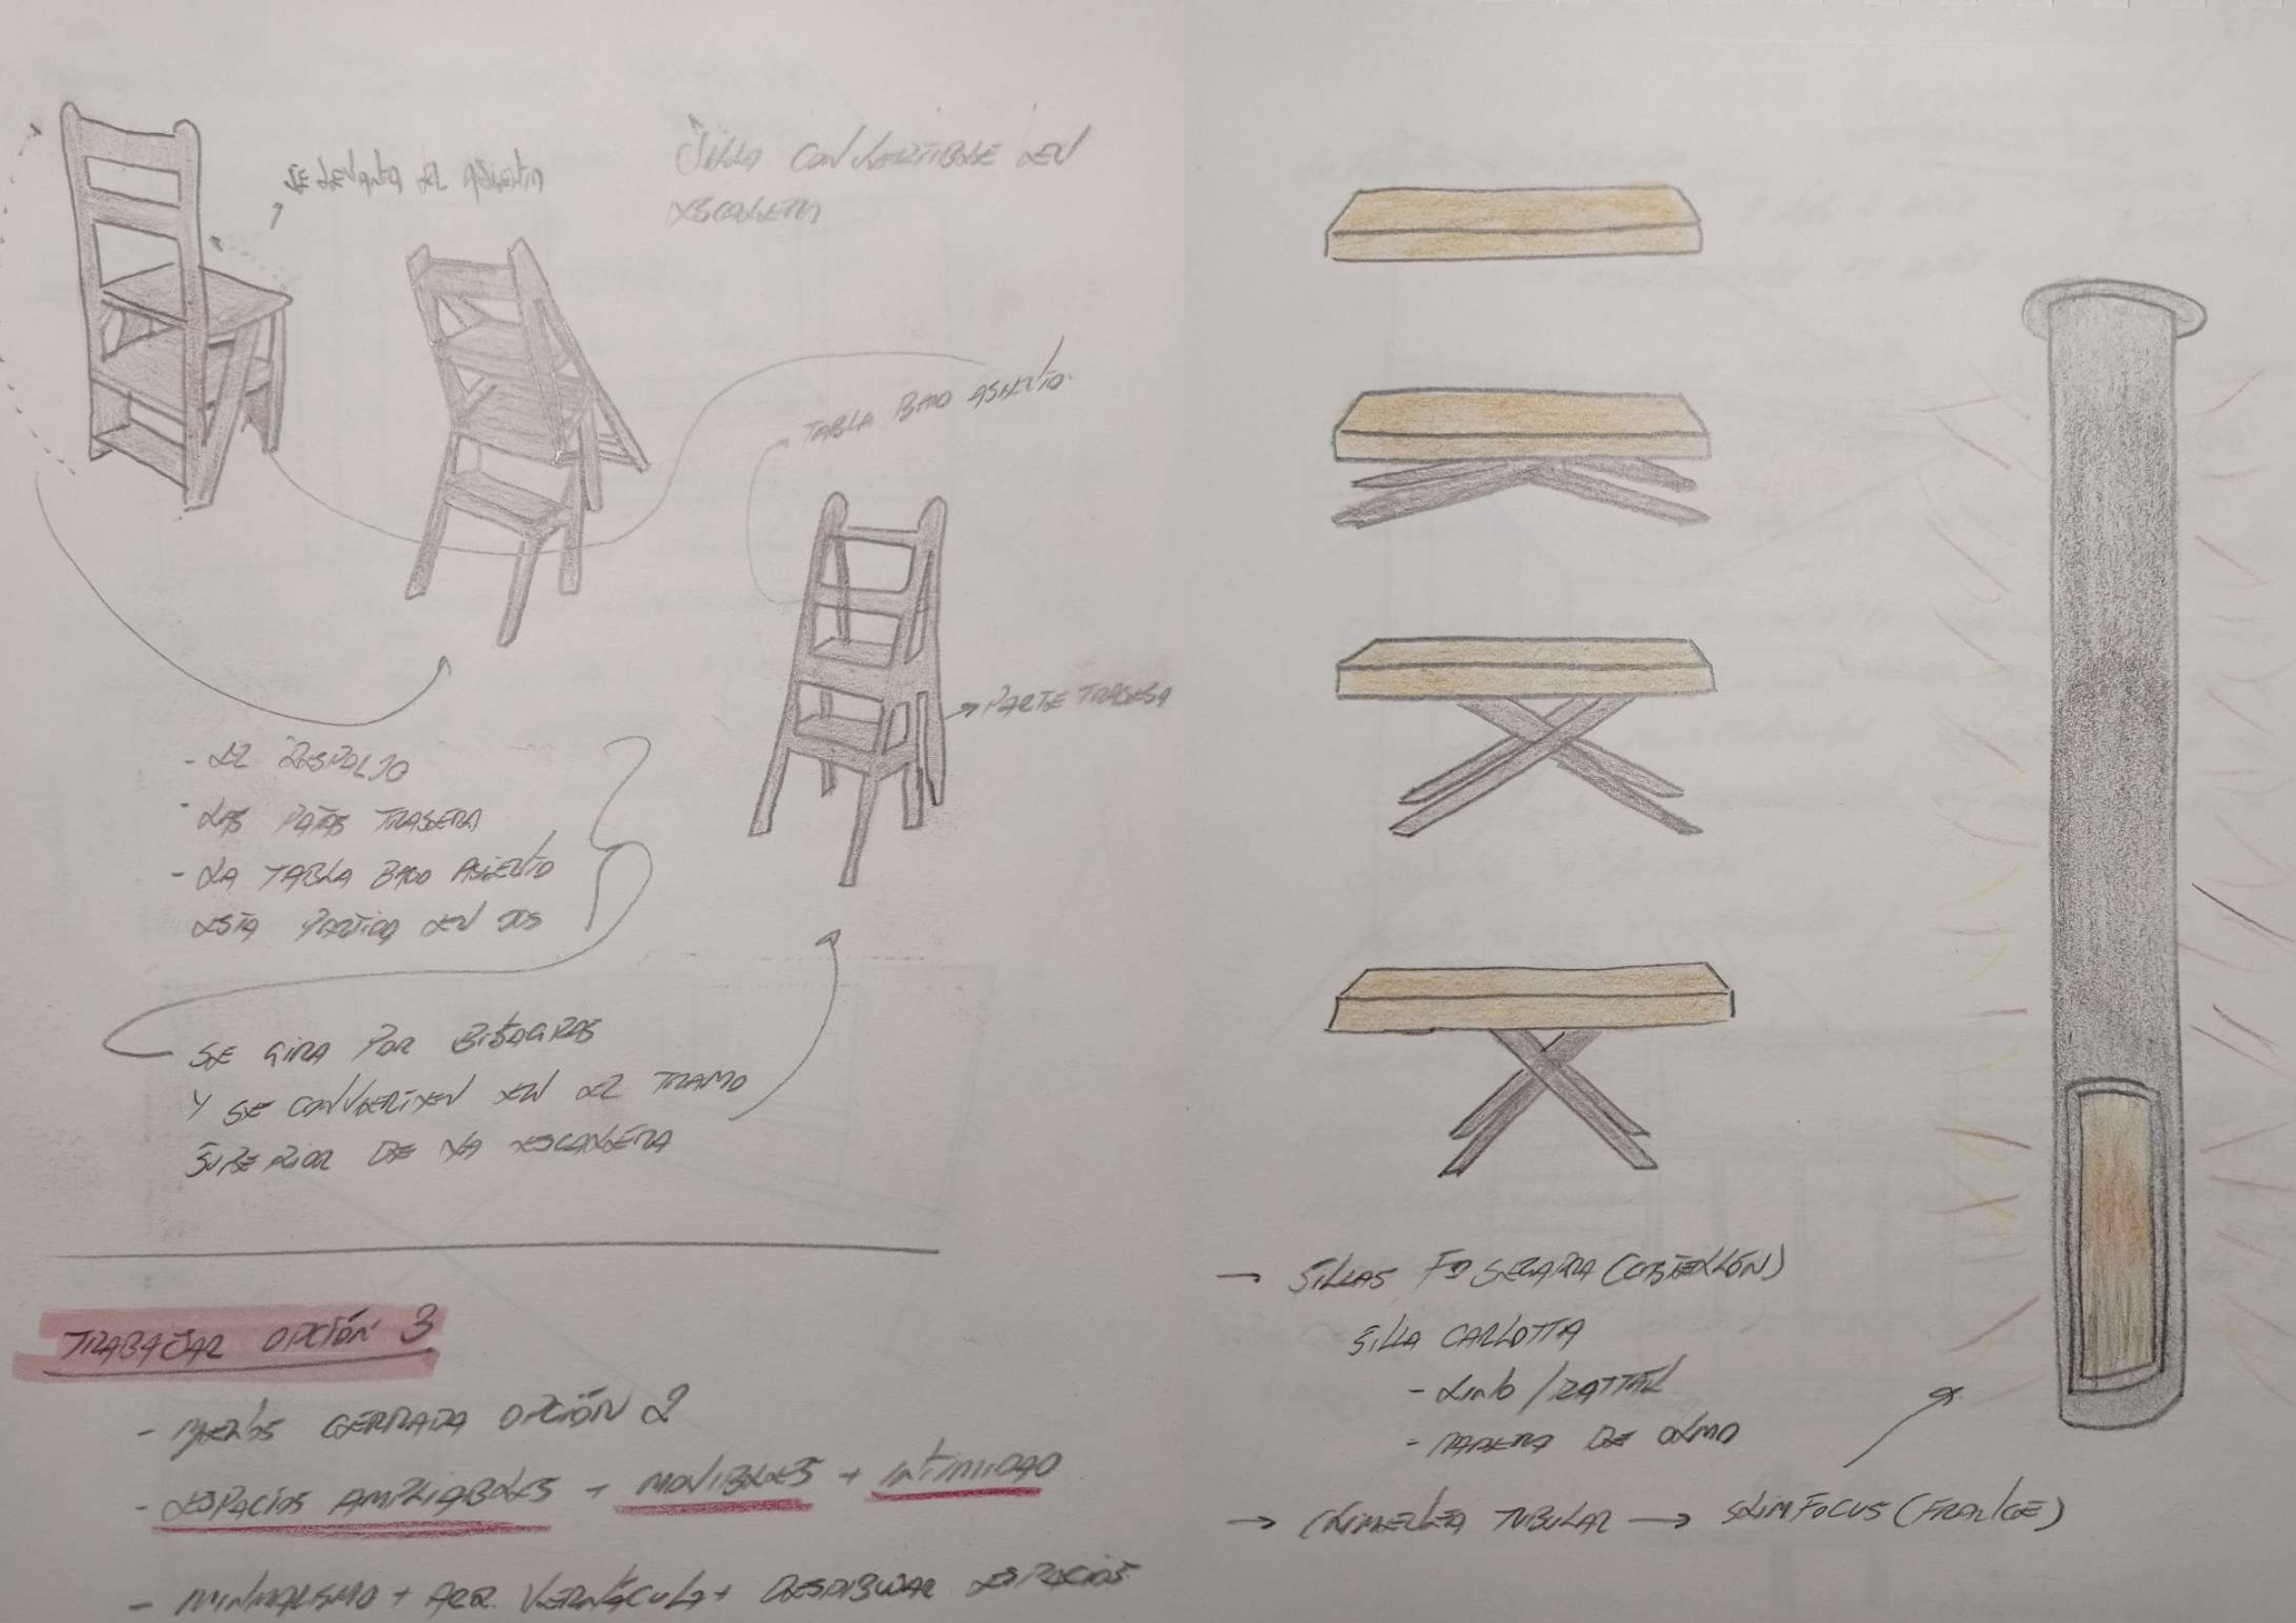 SE LEVANTA EL ASIENTO
SILLA CONVERTIBLE EN
ESCALERA
TABLA BAJO ASIENTO.
PARTE TRASERA
- EL RESPALDO
- LAS PATAS TRASERA
- LA TABLA BAJO ASIENTO
ESTÁ PARTIDA EN DOS
SE GIRA POR BISAGRAS
Y SE CONVIERTEN EN EL TRAMO
SUPERIOR DE LA ESCALERA
TRABAJAR OPCIÓN 3
- MENOS CERRADA OPCIÓN 2
- ESPACIOS AMPLIABLES + MOVIBLES + INTIMIDAD
- MINIMALISMO + ARQ. VERNÁCULA + DESDIBUJAR ESPACIOS
→ SILLAS SEGARRA (CASTELLÓN)
SILLA CARLOTTA
- LINO / RATTAN
- MADERA DE OLMO
→ CHIMENEA TUBULAR → SLIMFOCUS (FRANCE)